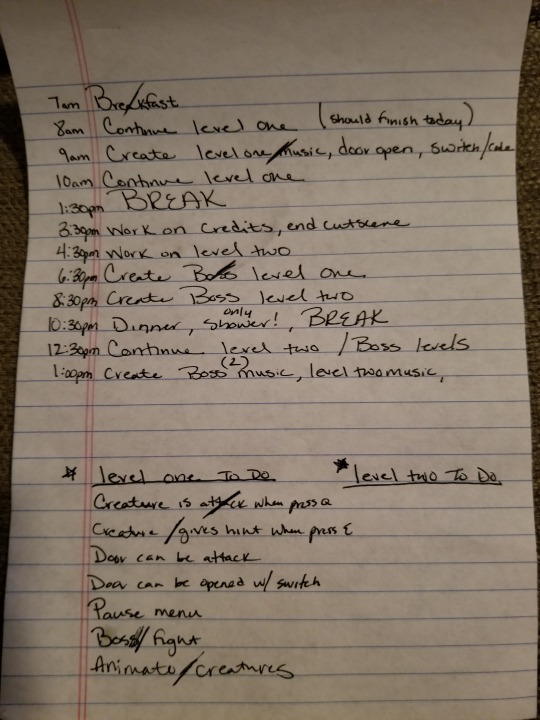 7am Breakfast
8am Continue level one (should finish today)
9am Create level one music, door open, switch/code
10am Continue level one
1:30pm BREAK
3:30pm Work on Credits, end cutscene
4:30pm Work on level two
6:30pm Create Boss level one
8:30pm Create Boss level two
only
10:30pm Dinner, shower!, BREAK
12:30pm Continue level two / Boss levels
(2)
1:00pm Create Boss music, level two music,
level one To Do
level two To Do
Creature is attack when press Q
Creature gives hint when press E
Door can be attack
Door can be opened w/ switch
Pause menu
Boss fight
Animate creatures